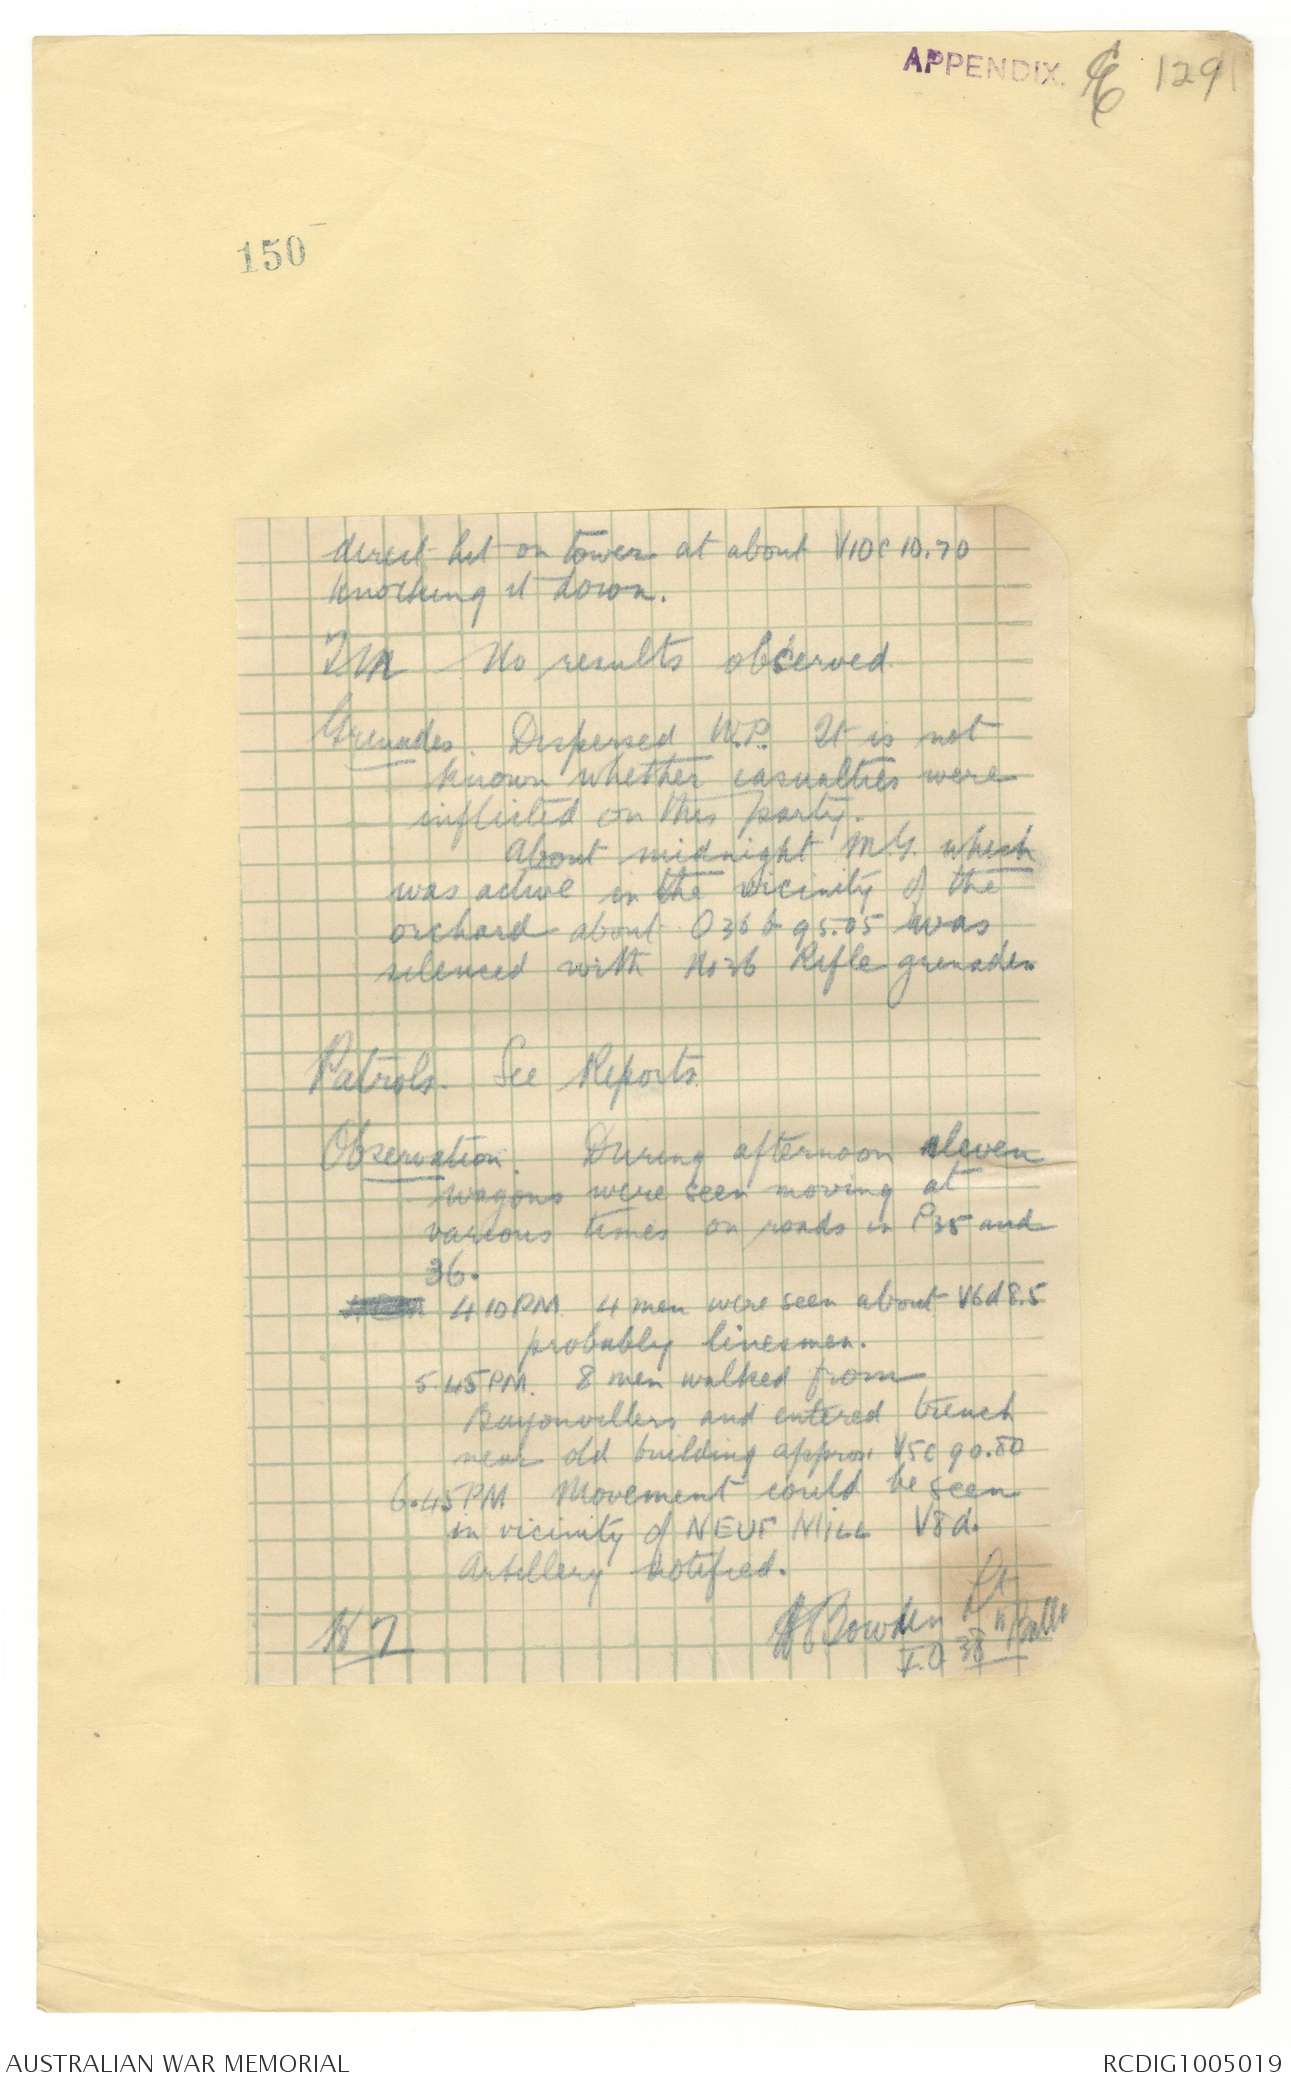 APPENDIX. 129
150
direct hit on tower at about V10c 10.70
knocking it down.
TM No results observed
Grenades. Dispersed W.P. It is not
known whether casualties were
inflicted on this party.
About midnight M.G. which
was active in the vicinity of the
orchard about O36b 95.05 was
silenced with No 36 Rifle grenades
Patrols. See Reports.
Observation. During afternoon eleven
wagons were seen moving at
various times on roads in P35 and
36.
4 10 PM 4 men were seen about V6d 8.5
probably linesmen.
5.45 PM. 8 men walked from
Bayonvillers and entered trench
near old building approx. V5c 90.80
6.45 PM Movement could be seen
in vicinity of NEUF MILL V8d.
Artillery notified.
Bowden Lt
I.O. 38th Battn
AUSTRALIAN WAR MEMORIAL
RCDIG1005019